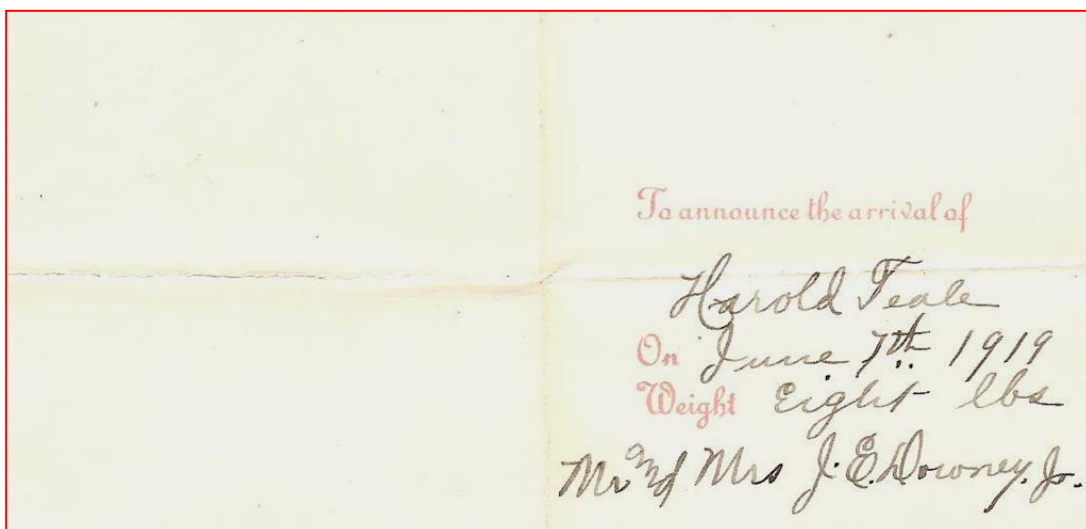 To announce the arrival of
Harold Teale
On June 7th 1919
Weight Eight lbs
Mr and Mrs J. E. Downey. Jr.